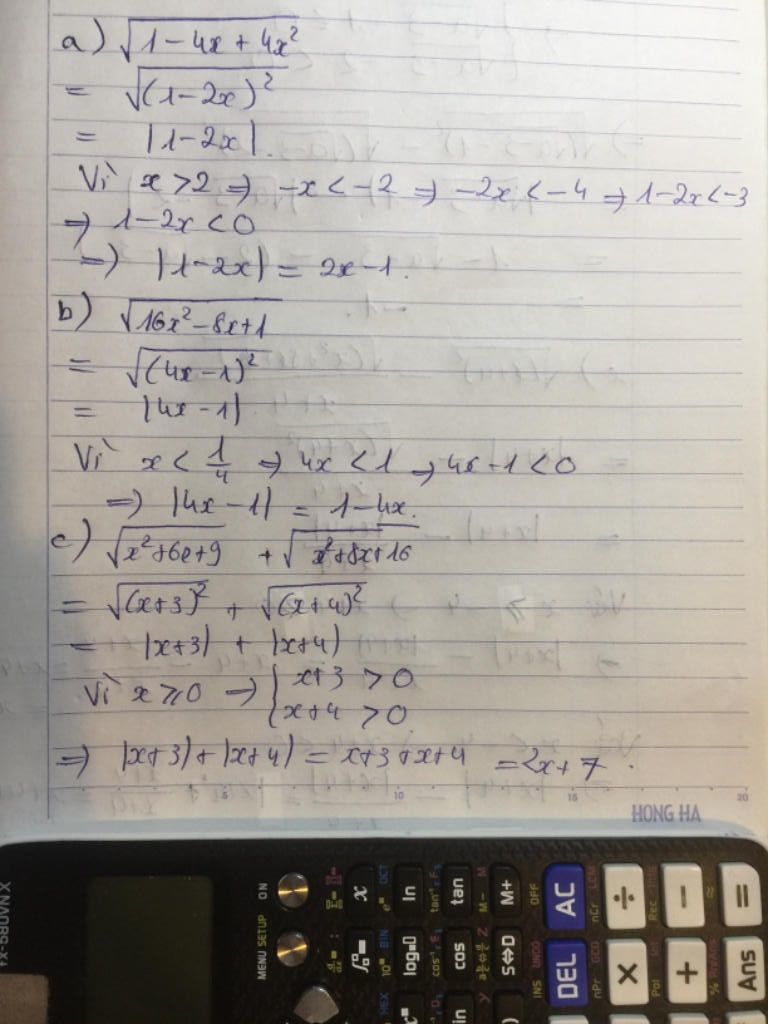 a) √(1-4x+4x²)
= √(1-2x)²
= |1-2x|.
Vì x>2 ⇒ -x<-2 ⇒ -2x<-4 ⇒ 1-2x<-3
⇒ 1-2x<0
⇒ |1-2x| = 2x-1.
b) √(16x²-8x+1)
= √(4x-1)²
= |4x-1|
Vì x < 1/4 ⇒ 4x<1 ⇒ 4x-1<0
⇒ |4x-1| = 1-4x.
c) √(x²+6x+9) + √(x²+8x+16)
= √(x+3)² + √(x+4)²
= |x+3| + |x+4|
Vì x≥0 ⇒ { x+3 > 0
x+4 > 0
⇒ |x+3|+|x+4| = x+3+x+4 = 2x+7.
5 10 15 20
HONG HA
ON
MENU SETUP
x ln tan M+
log cos S⇔D
OFF
AC ÷ - =
INS UNDO
DEL × + Ans